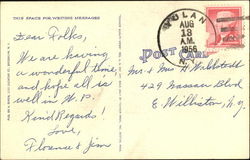 THIS SPACE FOR WRITING MESSAGES
Dear Folks,
We are having
a wonderful time,
and hope all is
well in W.P.
Kind Regards!
Love,
Florence & Jim
AUG
13
A.M.
1956
N.Y.
POST CARD
Mr & Mrs H
429 Nassau Blvd
E. Williston, N.Y.